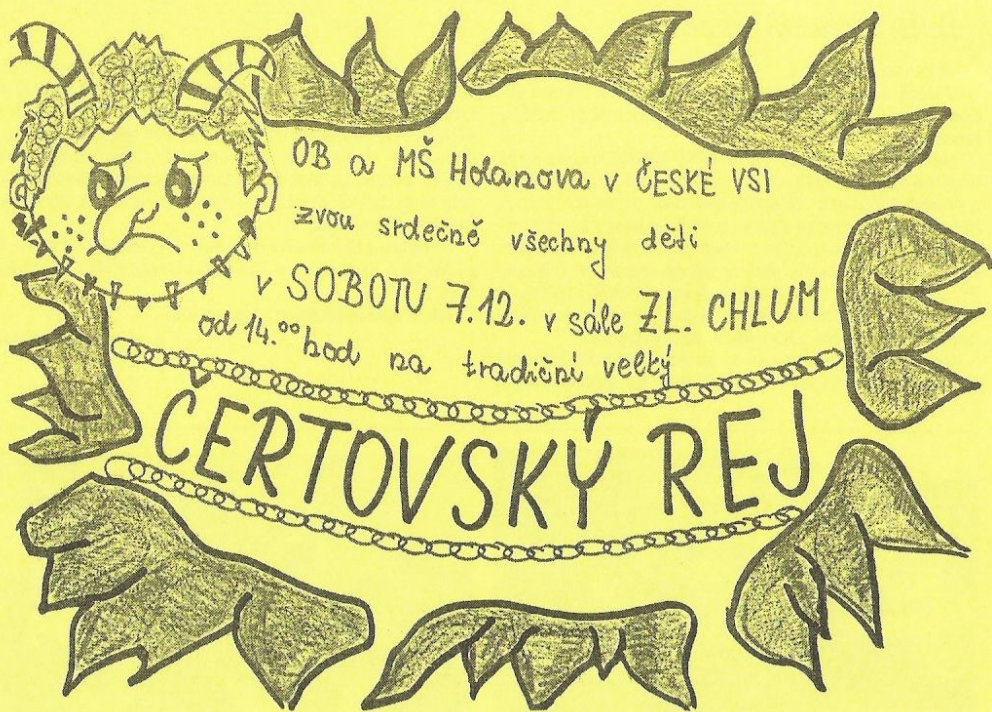 OB a MŠ Holanova v ČESKÉ VSI
zvou srdečně všechny děti
v SOBOTU 7.12. v sále ZL. CHLUM
od 14.⁰⁰ hod na tradiční velký
ČERTOVSKÝ REJ